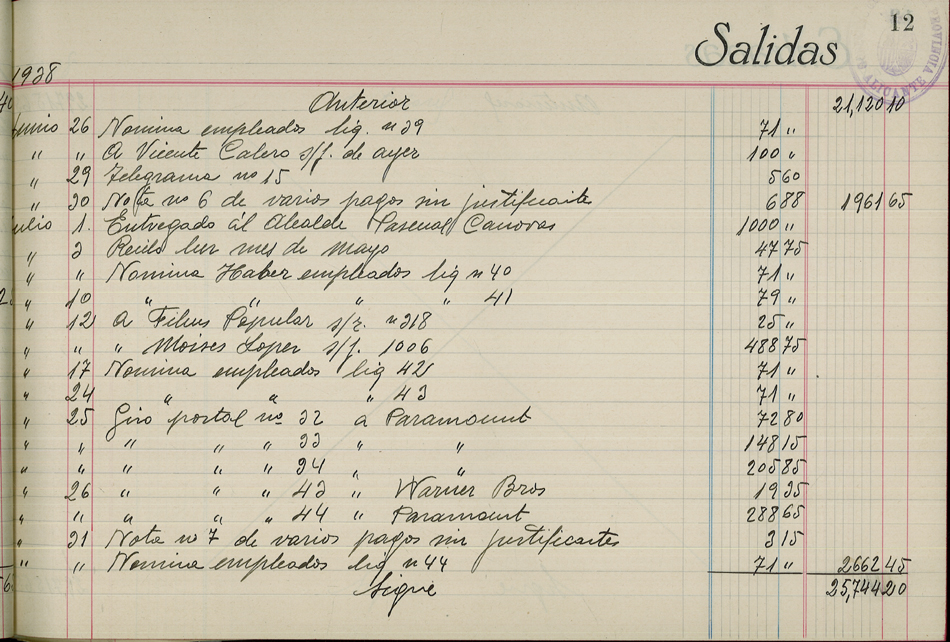 12
Salidas
ALICANTE
1938
Anterior 21,120 10
Junio 26 Nomina empleados liq. nº 39 71 "
" " A Vicente Calero s/f. de ayer 100 "
" 29 Telegrama nº 15 5 60
" 30 Nota nº 6 de varios pagos sin justificante 6 88 1961 65
Julio 1. Entregado al Alcalde Pascual Canovas 1000 "
" 3 Recibo luz mes de mayo 47 75
" " Nomina Haber empleados liq nº 40 71 "
" 10 " " " " 41 79 "
" 12 A Films Popular s/r. nº 318 25 "
" " " Moises Loper s/f. 1006 488 75
" 17 Nomina empleados liq 42 71 "
" 24 " " " 43 71 "
" 25 Giro postal nº 32 a Paramount 72 80
" " " " " 33 " " 148 15
" " " " " 34 " " 205 85
" 26 " " " 43 " Warner Bros 19 35
" " " " " 44 " Paramount 288 65
" 31 Nota nº 7 de varios pagos sin justificantes 3 15
" " Nomina empleados liq nº 44 71 " 2662 45
Sigue 25,744 20